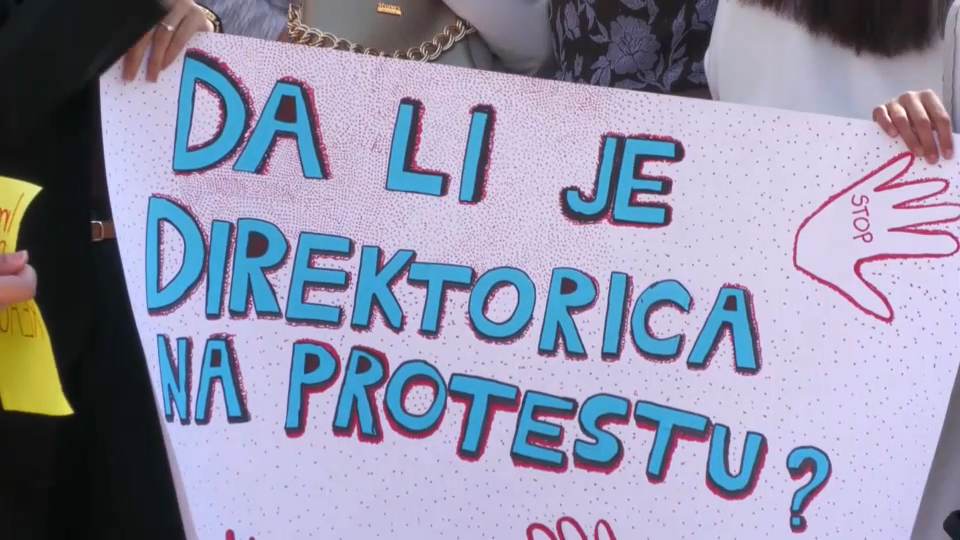 DA LI JE
DIREKTORICA
NA PROTESTU?
STOP